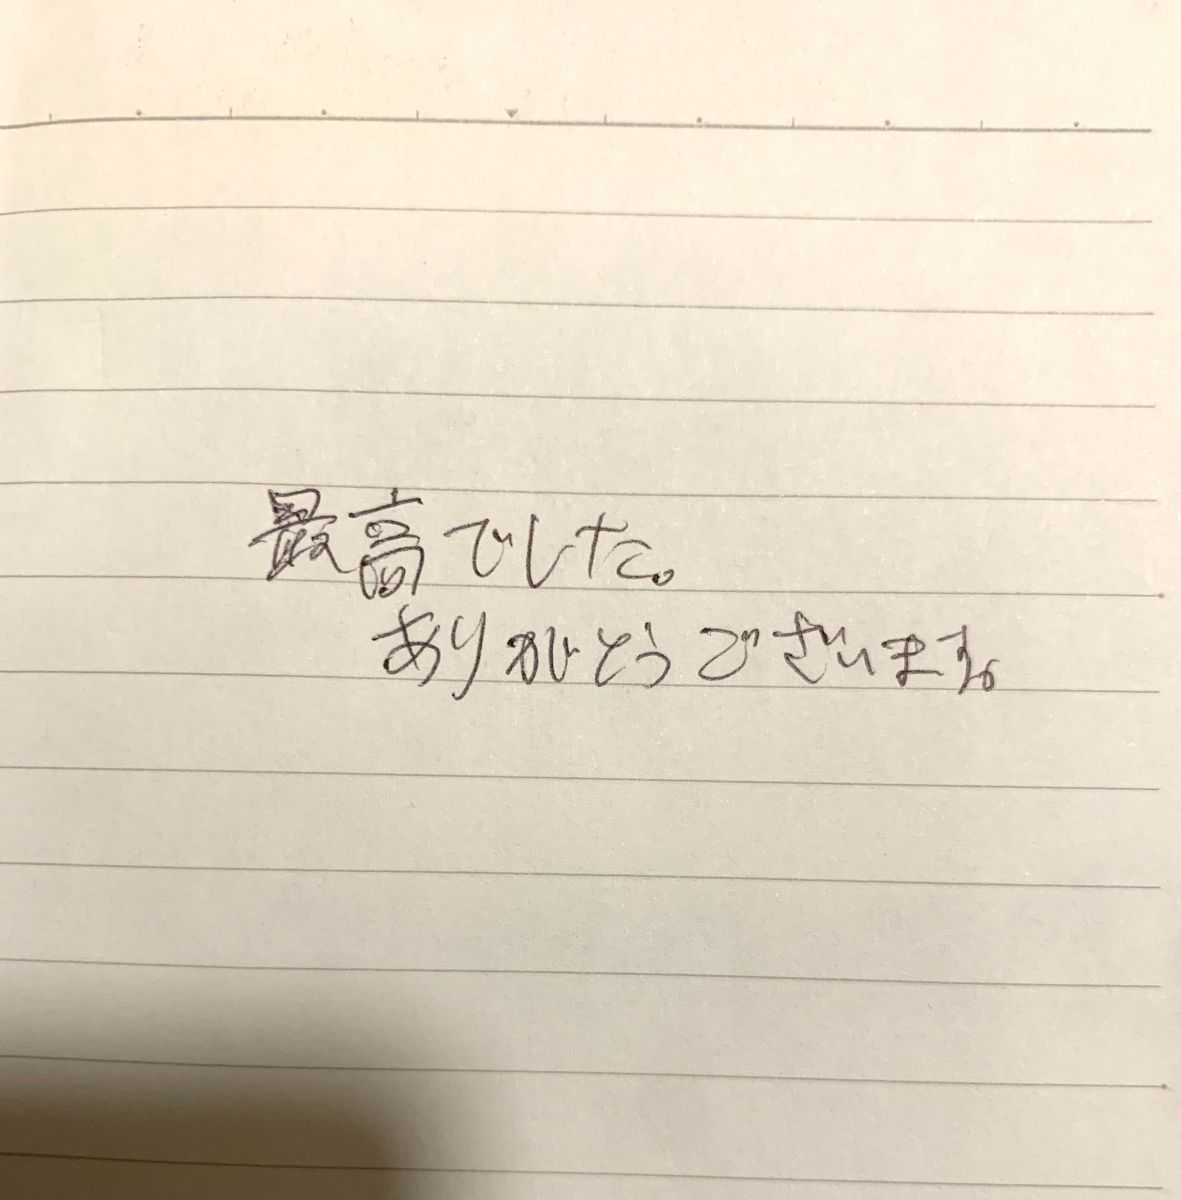 最高でした。
ありがとうございます。